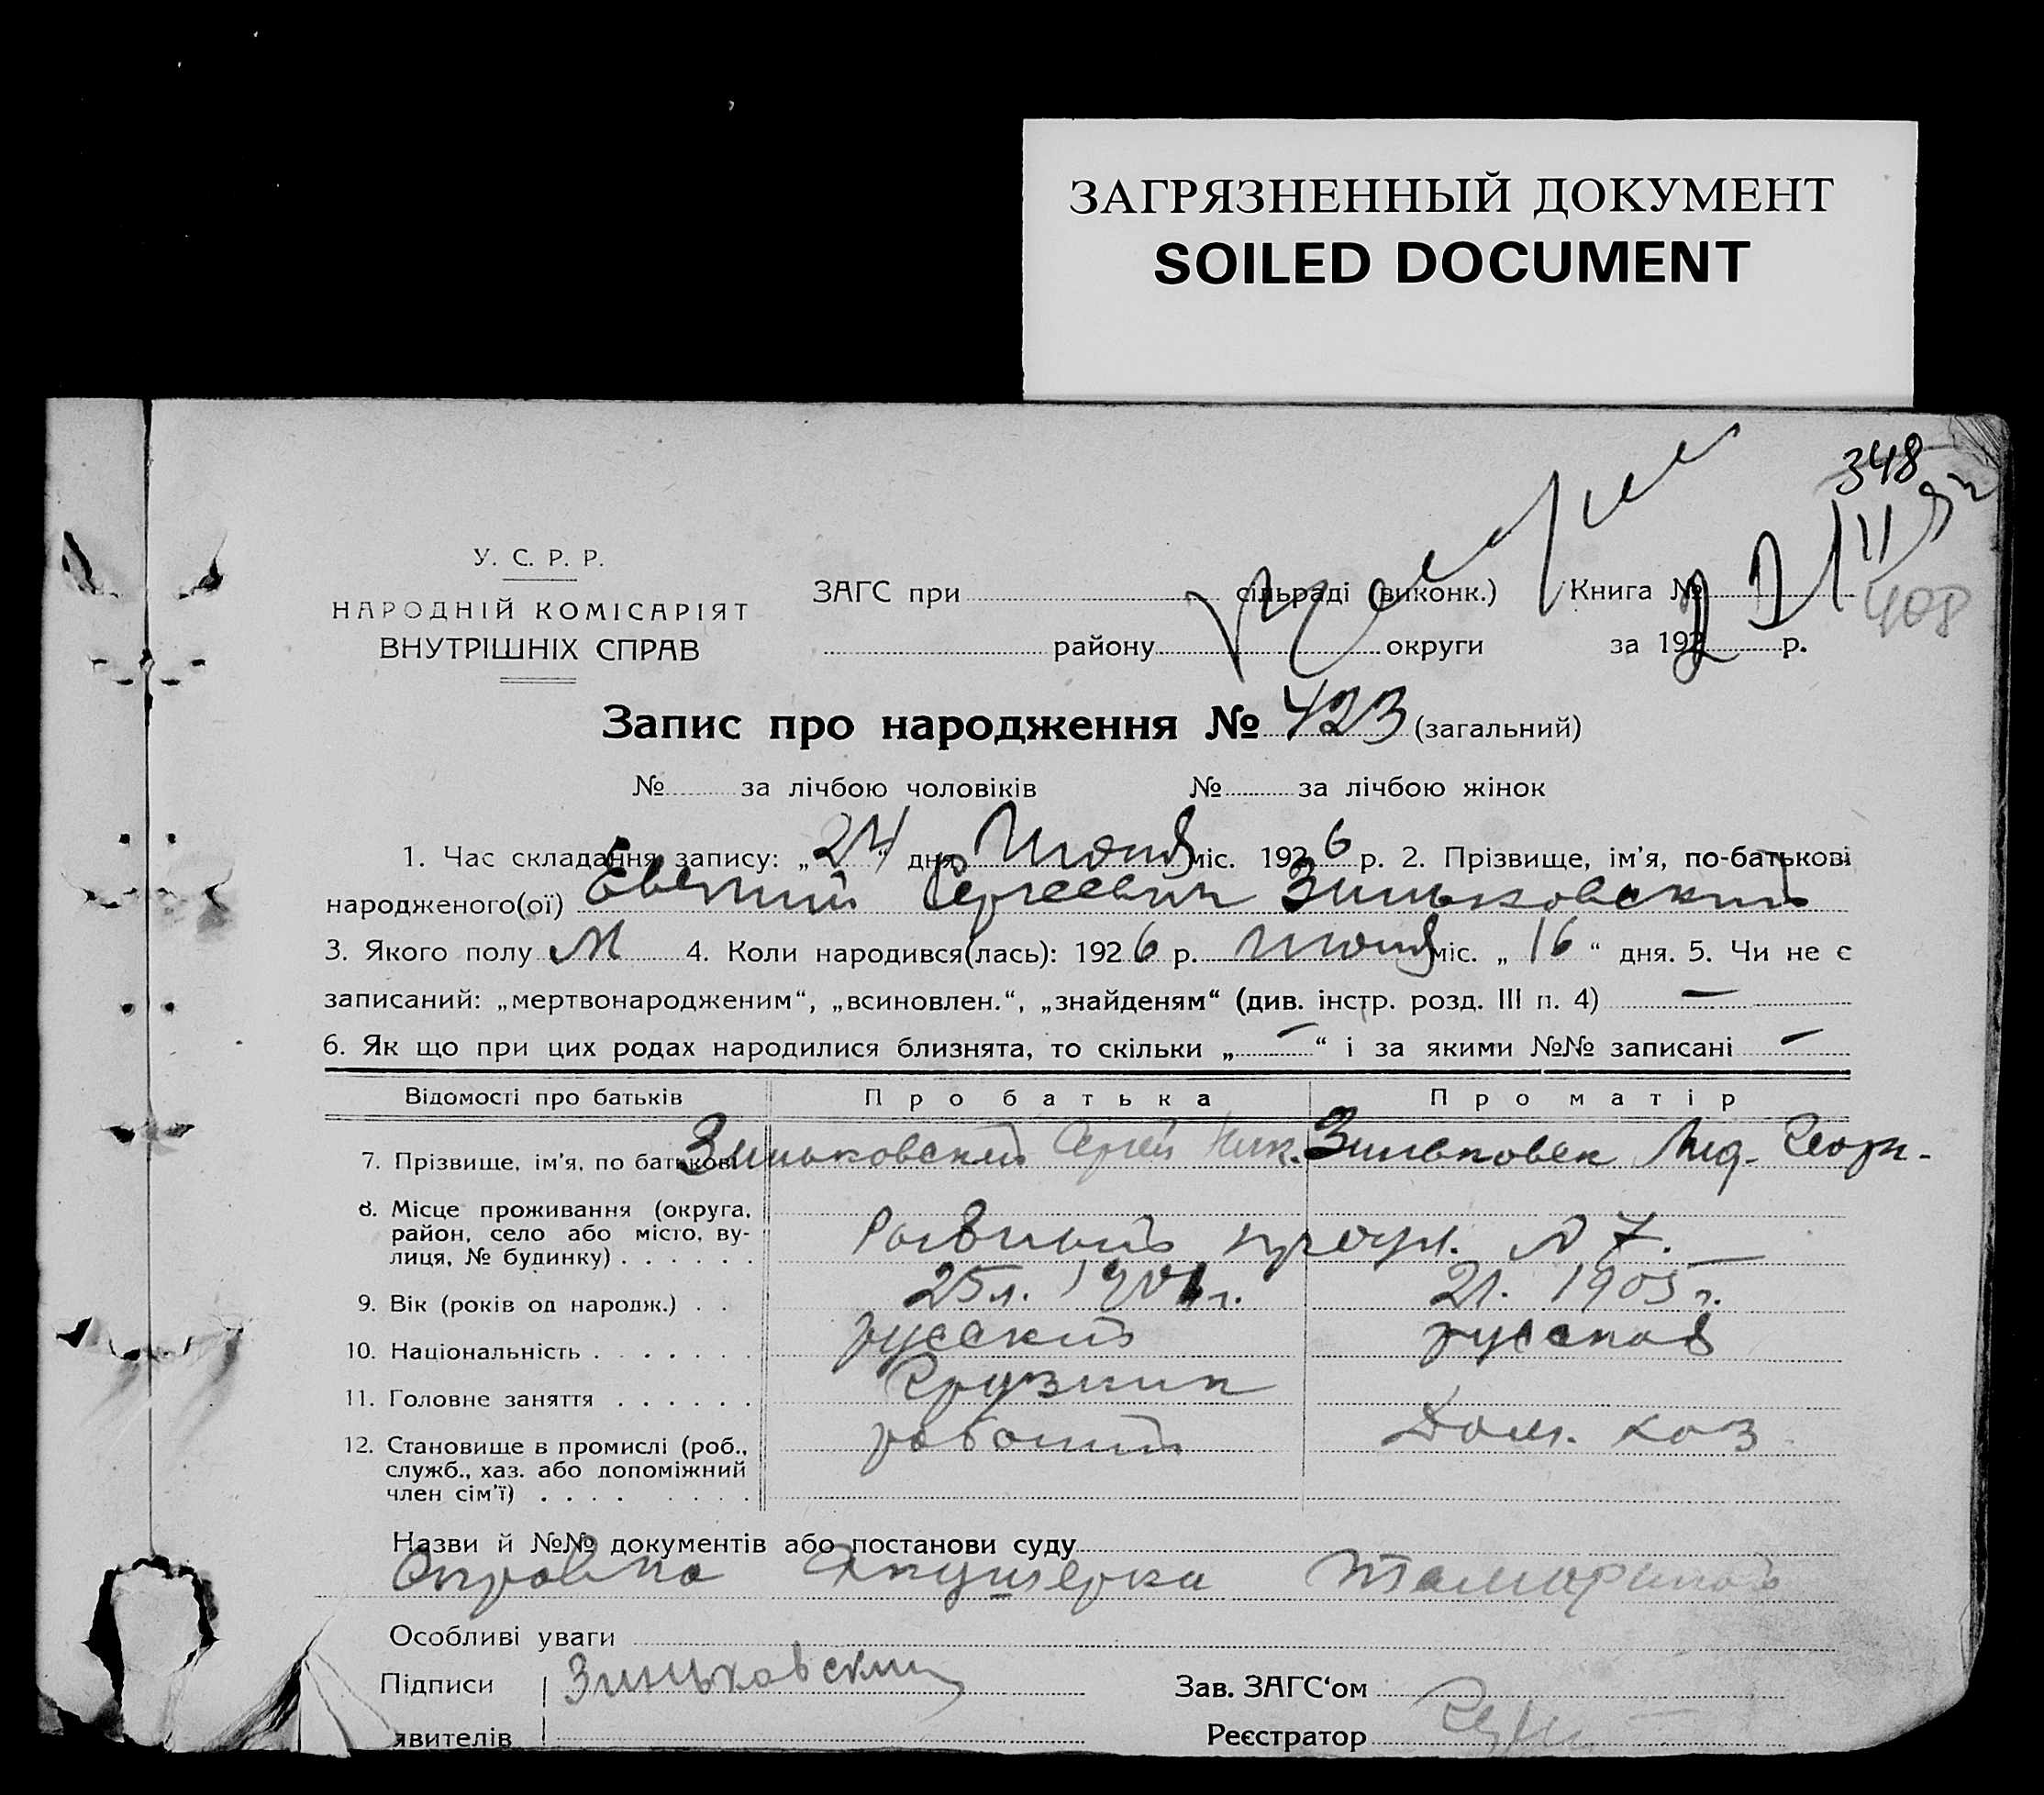 ЗАГРЯЗНЕННЫЙ ДОКУМЕНТ
SOILED DOCUMENT
348
408
У. С. Р. Р.
НАРОДНІЙ КОМІСАРІЯТ
ВНУТРІШНІХ СПРАВ
ЗАГС при сільраді (виконк.) Книга №
району округи за 192 р.
Запис про народження № 423 (загальний)
№ за лічбою чоловіків № за лічбою жінок
1. Час складання запису: „24“ дня Июня міс. 1926 р. 2. Прізвище, ім’я, по-батькові
народженого(ої) Евгений Сергеевич Зиньковский
3. Якого полу М 4. Коли народився(лась): 1926 р. Июня міс. „16“ дня. 5. Чи не є
записаний: „мертвонародженим“, „всиновлен.“, „знайденям“ (див. інстр. розд. III п. 4) —
6. Як що при цих родах народилися близнята, то скільки „—“ і за якими №№ записані —
Відомості про батьків Про батька Про матір
7. Прізвище, ім’я, по батькові Зиньковский Сергей Ник. Зиньковск Лид. Георг.
8. Місце проживання (округа,
район, село або місто, ву-
лиця, № будинку) . . . . . . № 7.
9. Вік (років од народж.) . . 25 л. 1901 г. 21. 1905 г.
10. Національність . . . . . . . русский русская
11. Головне заняття . . . . . . Грузчик
12. Становище в промислі (роб., рабочий Дом. хоз
служб., хаз. або допоміжний
член сім’ї) . . . . . . . .
Назви й №№ документів або постанови суду
Справка Акушерки
Особливі уваги
Підписи Зиньковский Зав. ЗАГС‘ом
явителів Реєстратор